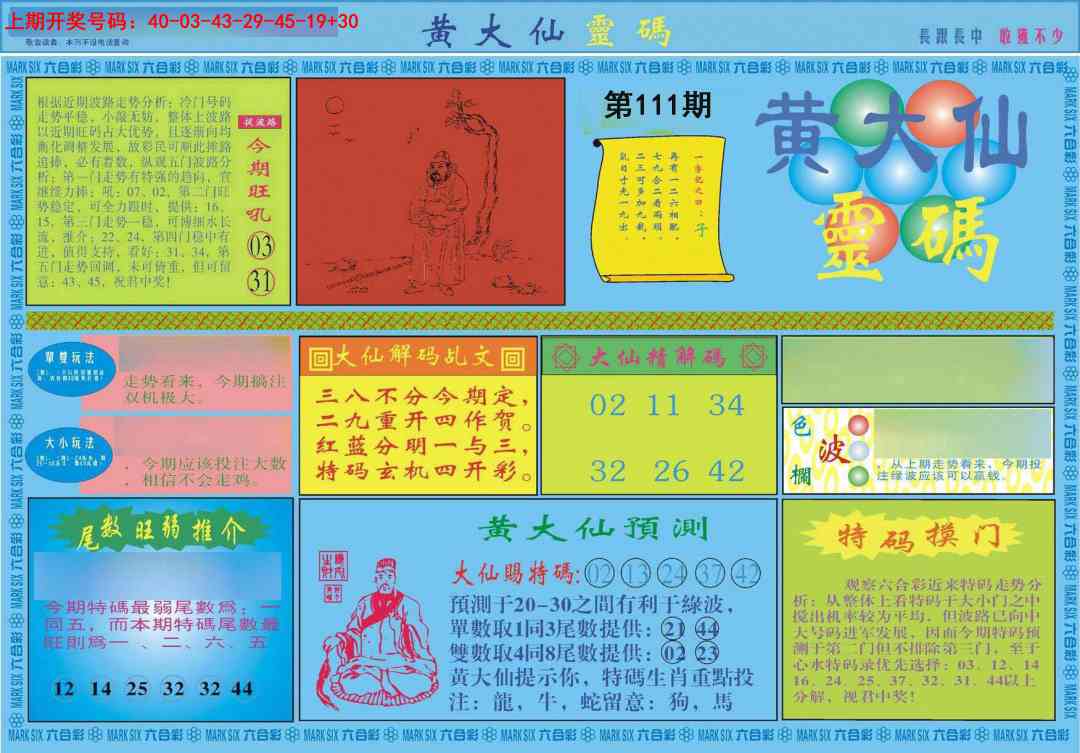 上期开奖号码：40-03-43-29-45-19+30
敬告读者：本刊不设电话查询
黄大仙靈碼
長跟長中 收獲不少
MARK SIX 六合彩
根据近期波路走势分析：冷门号码
走势平稳，小敲无妨，整体上波路
以近期旺码占大优势，且逐渐向均
衡化调整发展，故彩民可顺此推路
追捧，必有着数，纵观五门波路分
析：第一门走势有特强的趋向，宜
继续力捧：吼：07、02，第二门旺
势稳定，可全力跟时，提供：16、
15，第三门走势一稳，可博细水长
流，推介：22、24，第四门稳中有
进，值得支持，看好：31、34，第
五门走势回调，未可倚重，但可留
意：43、45，祝君中奖！
今期旺吼
03
31
第111期
一字记之曰：子
再有一二六相配
七九合二看两頭
二三可多加九截
乱日十九一九出
黄大仙
靈碼
單雙玩法
走势看来，今期搞注
双机极大。
大小玩法
，今期应该投注大数
，相信不会走鸡。
大仙解码乩文
三八不分今期定，
二九重开四作贺。
红蓝分明一与三，
特码玄机四开彩。
大仙精解碼
02 11 34
32 26 42
色波欄
，从上期走势看来，今期投
注绿波应该可以赢钱。
尾数旺弱推介
今期特碼最弱尾數爲：一
同五，而本期特碼尾數最
旺則爲一、二、六、五
12 14 25 32 32 44
黄大仙預測
大仙賜特碼：02 13 24 37 42
預測于20-30之間有利于綠波，
單數取1同3尾數提供：21 44
雙數取4同8尾數提供：02 23
黄大仙提示你，特碼生肖重點投
注：龍，牛，蛇留意：狗，馬
特码摸门
观察六合彩近来特码走势分
析：从整体上看特码干大小门之中
搅出机率较为平均，但波路已向中
大号码进军发展，因而今期特码预
测于第二门但不排除第三门，至于
心水特码录优先选择：03、12、14
16、24、25、37、32、31、44以上
分解，视君中奖！